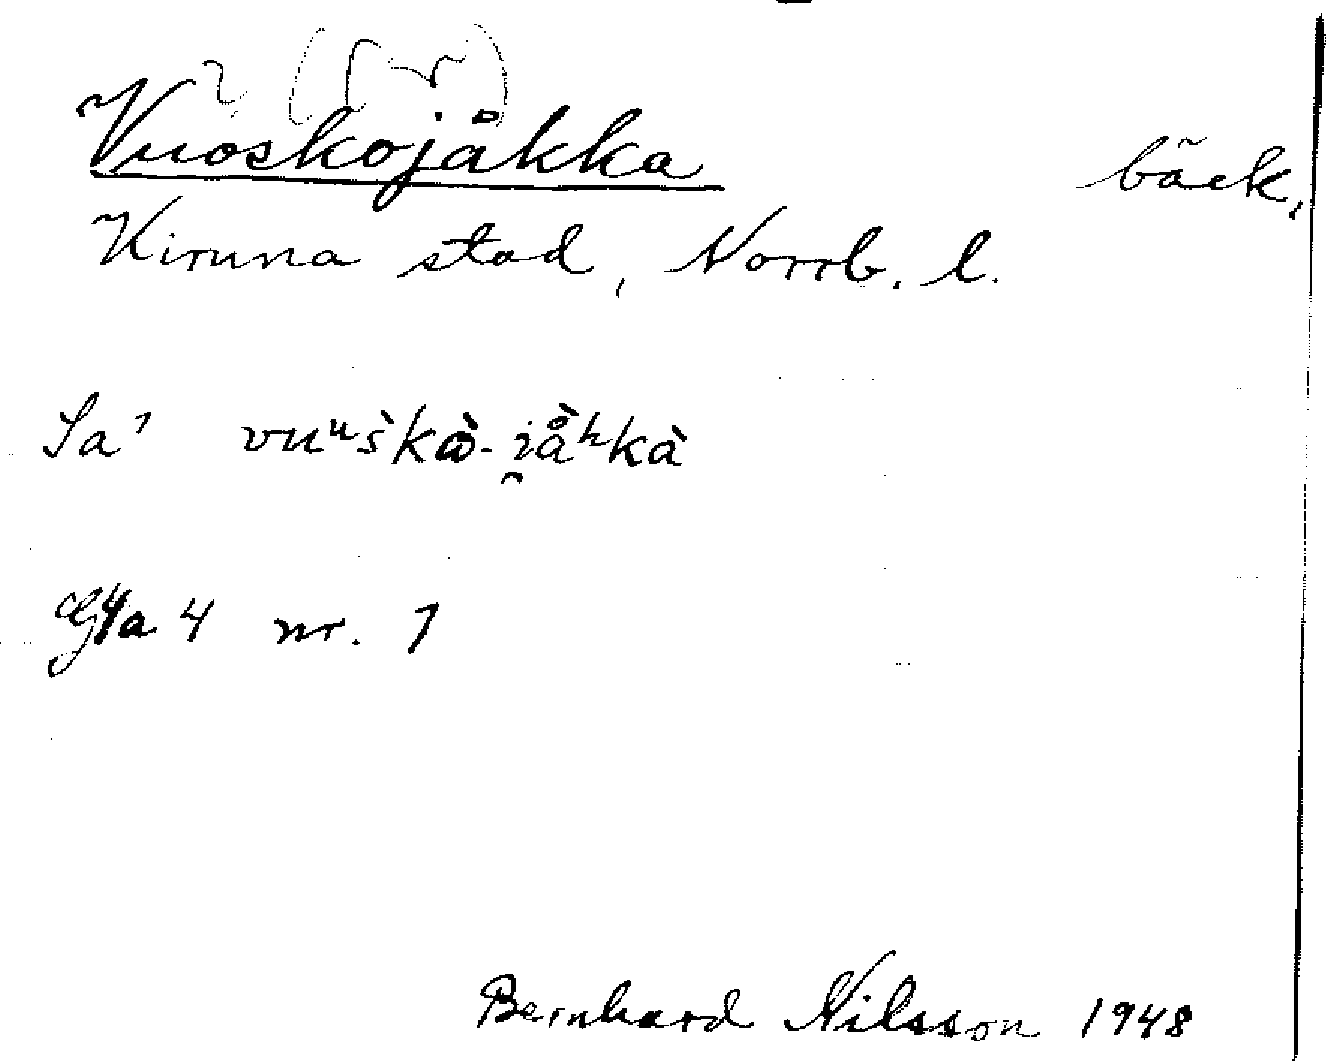 Vuoskojåkka bäck,
Kiruna stad, Norrb. l.
Sa¹ vuᵘškå̀-i̯å̀ʰkà
4a 4 nr. 1
Bernhard Nilsson 1948